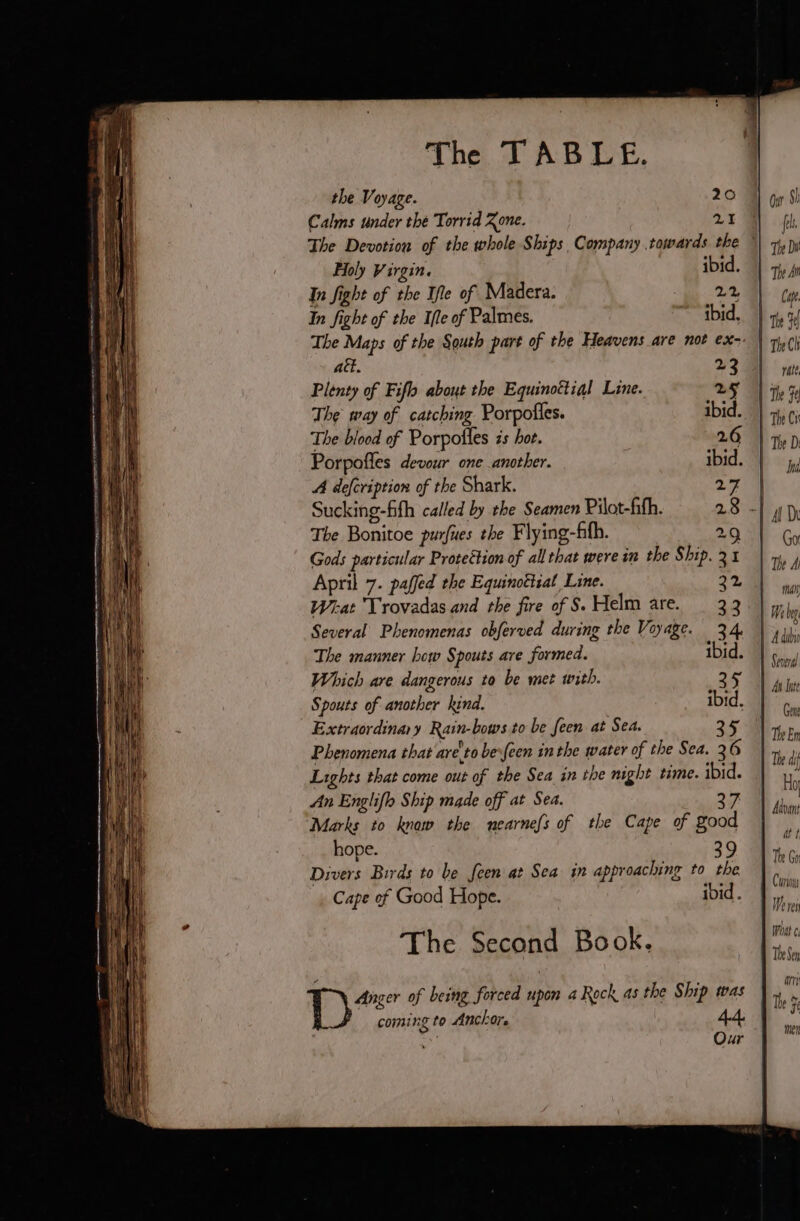 The TABLE.
the Voyage. 20
Calms under the Torrid Zone. 21
The Devotion of the whole Ships Company towards the
Holy Virgin. ibid.
In ſight of the Iſle of Madera. 22
In ſight of the Iſle of Palmes. ibid.
The Maps of the South part of the Heavens are not ex-
act. 23
Plenty of Fiſh about the Equinoctial Line. 25
The way of catching Porpoſſes. ibid.
The blood of Porpoſſes is hot. 26
Porpoſſes devour one another. ibid.
A deſcription of the Shark. 27
Sucking-fiſh called by the Seamen Pilot-fiſh. 28
The Bonitoe purſues the Flying-fiſh. 29
Gods particular Protection of all that were in the Ship. 31
April 7. paſſed the Equinoctial Line. 32
What Trovadas and the fire of S. Helm are. 33
Several Phenomenas obſerved during the Voyage. 34
The manner how Spouts are formed. ibid.
Which are dangerous to be met with. 35
Spouts of another kind. ibid.
Extraordinary Rain-bows to be ſeen at Sea. 35
Phenomena that are to be ſeen in the water of the Sea. 36
Lights that come out of the Sea in the night time. ibid.
An Engliſh Ship made off at Sea. 37
Marks to know the nearneſs of the Cape of good
hope. 39
Divers Birds to be ſeen at Sea in approaching to the
Cape of Good Hope. ibid.
The Second Book.
DAnger of being forced upon a Rock as the Ship was
coming to Anchor. 44
Our